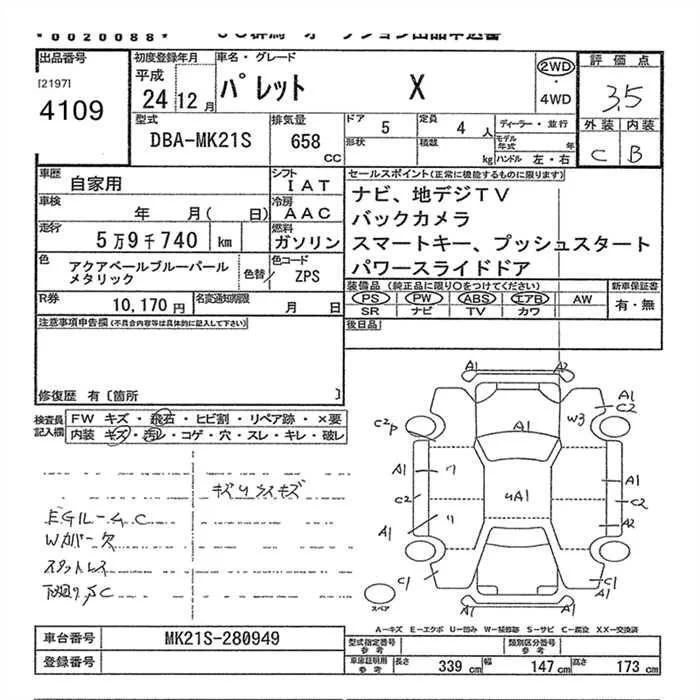 *0020088*
出品番号
[2197]
4109
初度登録年月
平成
24 12月
車名・グレード
パレット X
2WD
・
4WD
評価点
3.5
外装 内装
C B
型式
DBA-MK21S
排気量
658
CC
ドア 5
定員 4 人
ディーラー・並行
形状
積載
kg
モデル年式 年
ハンドル 左・右
車歴
自家用
シフト
IAT
車検
年 月( 日)
冷房
AAC
走行
5万9千740 km
燃料
ガソリン
色
アクアベールブルーパール
メタリック
色替
色コード
ZPS
R券
10,170円
名変通知期限
月 日
セールスポイント(正常に機能するものに限ります)
ナビ、地デジTV
バックカメラ
スマートキー、プッシュスタート
パワースライドドア
装備品 (純正品に限り○をつけてください)
新車保証書
PS PW ABS エアB AW
有・無
SR ナビ TV カワ
後日品
注意事項申告欄(不具合内容等は具体的に記入して下さい)
修復歴 有〔箇所 〕
検査員
記入欄
FW キズ・飛石・ヒビ割・リペア跡・×要
内装 キズ・汚レ・コゲ・穴・スレ・キレ・破レ
EGルームC
Wカバー欠
スタットレス
下廻りSC
A1 A2
A1
C2
W3
C2P
A1
A1 ワ
C2
リ
A1
4A1
A1
C2
A2
C1
C1
A1 A1
スペア
A－キズ E－エクボ U－凹み W－補修跡 S－サビ C－腐食 XX－交換済
車台番号
MK21S-280949
登録番号
型式指定番号
参考
類別区分番号
参考
車庫証明用
参考
長さ 339 cm
幅 147 cm
高さ 173 cm